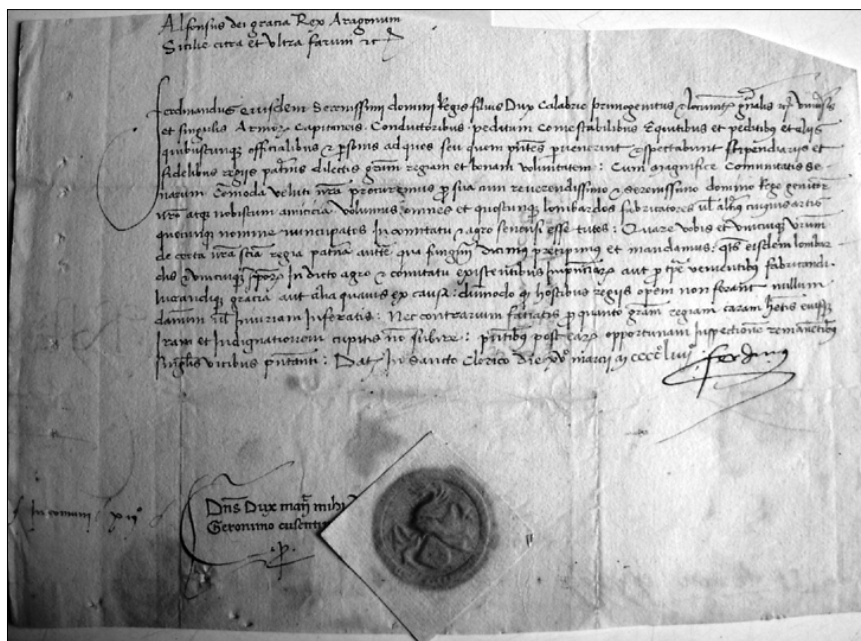 Alfonsus dei gracia Rex Aragonum
Sicilie citra et ultra farum &c
Ferdinandus eiusdem Serenissimi domini Regis filius Dux Calabrie primogenitus & locumtens gnalis &
et singulis Armor Capitaneis Conductoribus peditum Comestabilibus Equitibus et peditibus et aliis
quibuscunq officialibus & psonis ad quos seu quem pntes pervenerint & spectabunt stipendiariis et
fidelibus regiis patnis dilectis gram regiam et bonam voluntatem: Cum magnifice Comunitatis Se-
narum Comoda veluti nra procuremus p sua cum reverendissimo & serenissimo domino Rege genitore
nro atq nobiscum amicicia volumus omnes et quoscunq lombardos fabricatores vl alios cuiusvis artis
quocunq nomine nuncupatos In comitatu & agro senensi esse tutos: Quare vobis et unicuiq vrum
de certa nra scia regia patna aucte qua fungimur dicimus precipimus et mandamus: qts eisdem lombar
dis & unicuiq ipor In dicto agro & comitatu existentibus aut venientibus fabricandi
lucrandiq gracia aut alia quavis ex causa: dumodo q hostibus regiis opem non ferant nullum
damnum vl Iniuriam Inferatis: Nec contrarium faciatis p quanto gram regiam caram hetis eiusq
Iram et Indignationem cupitis no subire: pntibus post earum opportunam Inspectionem remanentibus
singulis vicibus pntanti: Dat In Sancto Clerico die xv marcii M cccc liiii
Ferdinandus
Dns Dux man mihi
Geronimo cusenti
In comuni xii